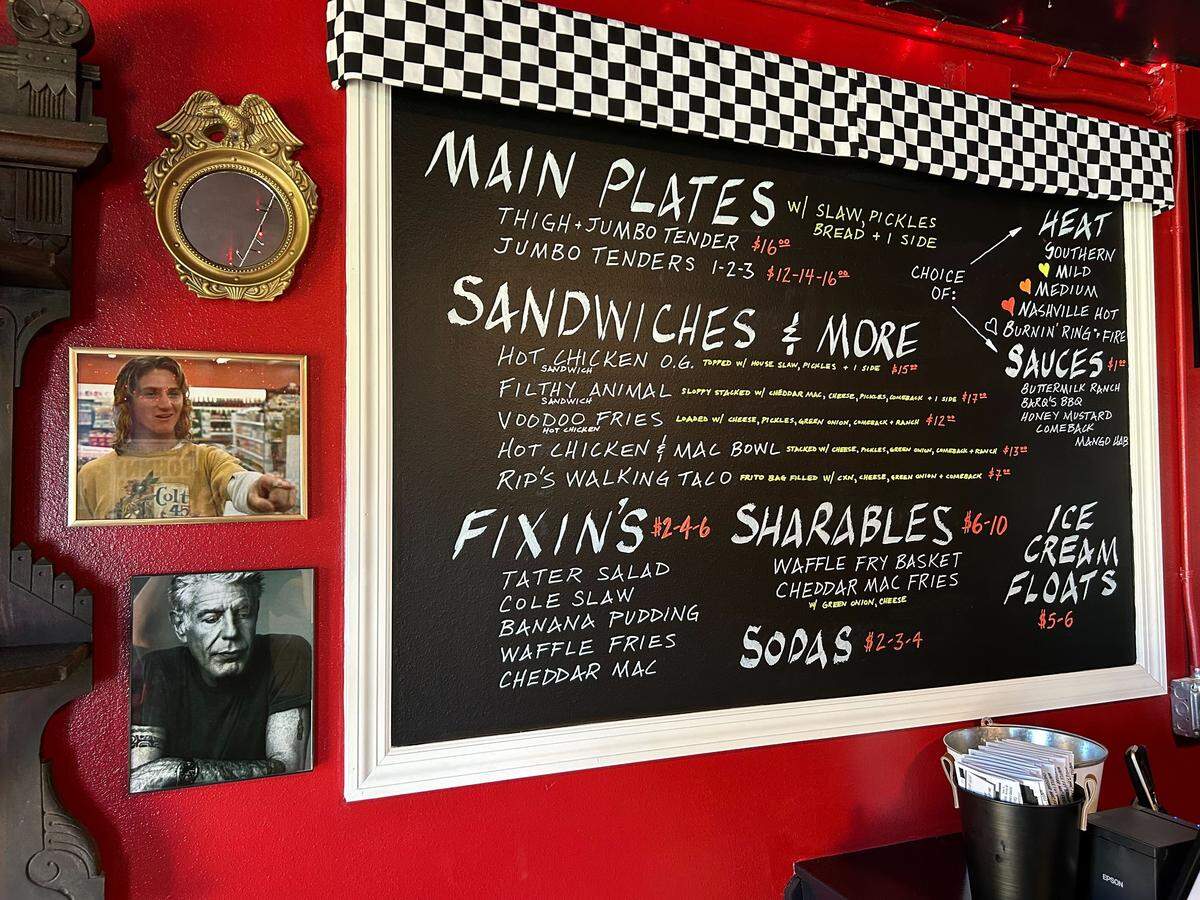 MAIN PLATES W/ SLAW, PICKLES
BREAD + 1 SIDE
THIGH + JUMBO TENDER $16⁰⁰
JUMBO TENDERS 1-2-3 $12-14-16⁰⁰
CHOICE
OF:
HEAT
SOUTHERN
MILD
MEDIUM
NASHVILLE HOT
BURNIN' RING • FIRE
SAUCES $1⁰⁰
BUTTERMILK RANCH
BARQ'S BBQ
HONEY MUSTARD
COMEBACK
MANGO HAB
SANDWICHES & MORE
HOT CHICKEN O.G. TOPPED W/ HOUSE SLAW, PICKLES + 1 SIDE $15⁰⁰
SANDWICH
FILTHY ANIMAL SLOPPY STACKED W/ CHEDDAR MAC, CHEESE, PICKLES, COMEBACK + 1 SIDE $17⁰⁰
SANDWICH
VOODOO FRIES LOADED W/ CHEESE, PICKLES, GREEN ONION, COMEBACK + RANCH $12⁰⁰
HOT CHICKEN
HOT CHICKEN & MAC BOWL STACKED W/ CHEESE, PICKLES, GREEN ONION, COMEBACK + RANCH $13⁰⁰
RIP'S WALKING TACO FRITO BAG FILLED W/ CXN, CHEESE, GREEN ONION + COMEBACK $7⁰⁰
FIXIN'S $2-4-6
TATER SALAD
COLE SLAW
BANANA PUDDING
WAFFLE FRIES
CHEDDAR MAC
SHARABLES $6-10
WAFFLE FRY BASKET
CHEDDAR MAC FRIES
W/ GREEN ONION, CHEESE
SODAS $2-3-4
ICE
CREAM
FLOATS
$5-6
Colt
45
EPSON